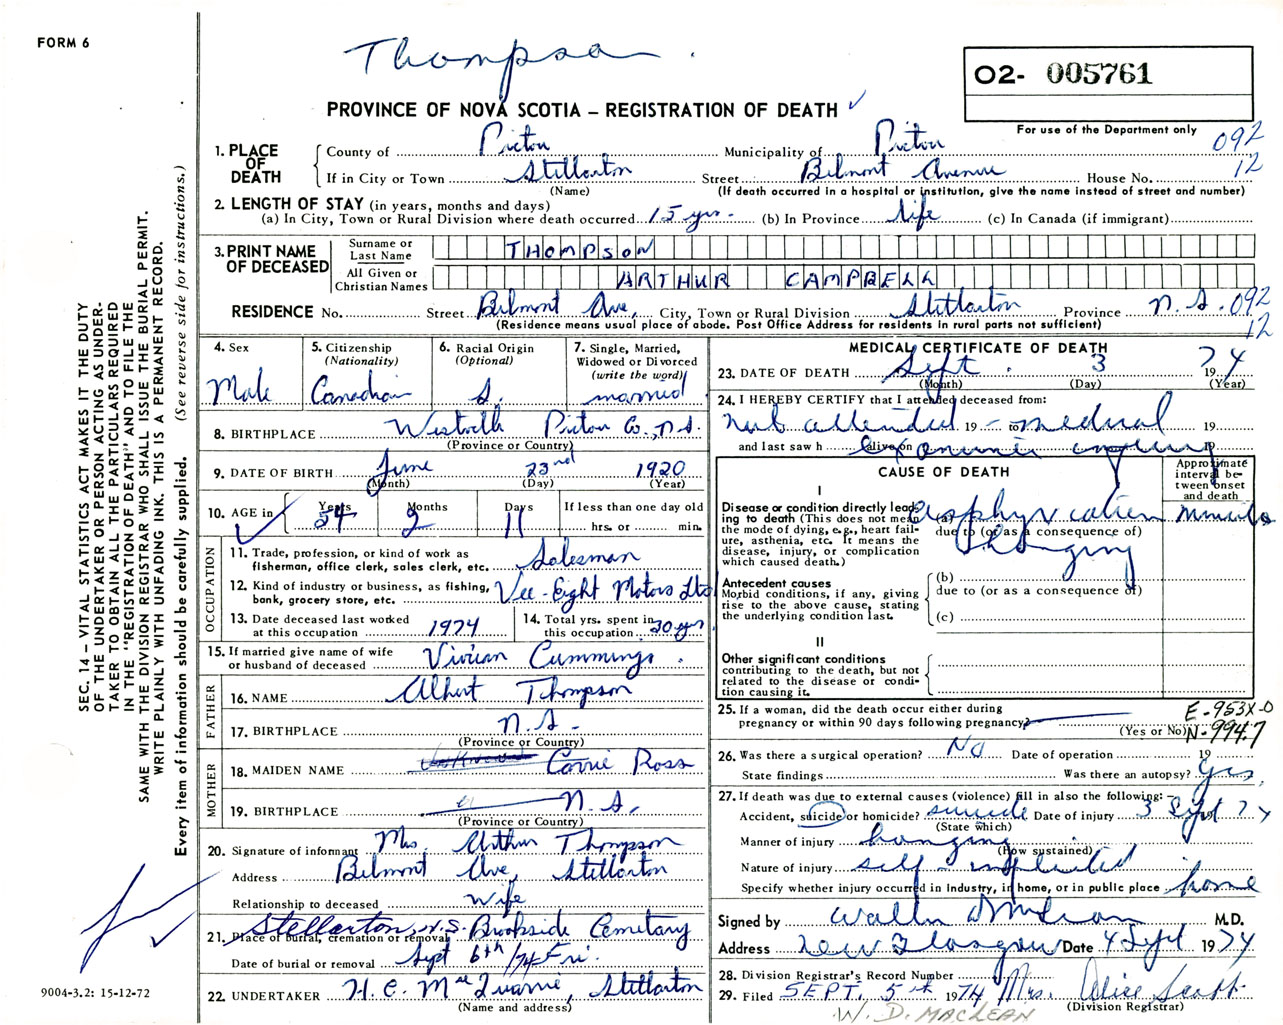 FORM 6
Thompson
O2- 005761
PROVINCE OF NOVA SCOTIA – REGISTRATION OF DEATH
For use of the Department only
092
12
1. PLACE OF DEATH
County of Pictou Municipality of Pictou
If in City or Town Stellarton Street Belmont Avenue House No.
(Name) (If death occurred in a hospital or institution, give the name instead of street and number)
2. LENGTH OF STAY (in years, months and days)
(a) In City, Town or Rural Division where death occurred 15 yrs. (b) In Province life (c) In Canada (if immigrant)
3. PRINT NAME OF DECEASED
Surname or Last Name THOMPSON
All Given or Christian Names ARTHUR CAMPBELL
RESIDENCE No. Street Belmont Ave, City, Town or Rural Division Stellarton Province N.S. 092
(Residence means usual place of abode. Post Office Address for residents in rural parts not sufficient)
12
4. Sex
Male
5. Citizenship
(Nationality)
Canadian
6. Racial Origin
(Optional)
S.
7. Single, Married, Widowed or Divorced
(write the word)
married
8. BIRTHPLACE Westville Pictou Co., N.S.
(Province or Country)
9. DATE OF BIRTH June 23rd 1920
(Month) (Day) (Year)
10. AGE in
Years 54
Months 2
Days 11
If less than one day old
hrs. or min.
OCCUPATION
11. Trade, profession, or kind of work as fisherman, office clerk, sales clerk, etc. Salesman
12. Kind of industry or business, as fishing, bank, grocery store, etc. Vee-Eight Motors Ltd
13. Date deceased last worked at this occupation 1974
14. Total yrs. spent in this occupation 30 yrs.
15. If married give name of wife or husband of deceased Vivian Cummings.
FATHER
16. NAME Albert Thompson
17. BIRTHPLACE N.S.
(Province or Country)
MOTHER
18. MAIDEN NAME Carrie Ross
19. BIRTHPLACE N.S.
(Province or Country)
20. Signature of informant Mrs. Arthur Thompson
Address Belmont Ave, Stellarton
Relationship to deceased Wife
Stellarton, N.S. Brookside Cemetary
21. Place of burial, cremation or removal
Date of burial or removal Sept 6th/74 Fri.
22. UNDERTAKER H. C. Stellarton
(Name and address)
MEDICAL CERTIFICATE OF DEATH
23. DATE OF DEATH Sept. 3 1974
(Month) (Day) (Year)
24. I HEREBY CERTIFY that I attended deceased from:
not attended 19 – to medical 19
and last saw h alive on examiner inquiry 19
CAUSE OF DEATH
Approximate interval between onset and death
I
Disease or condition directly leading to death (This does not mean the mode of dying, e.g., heart failure, asthenia, etc. It means the disease, injury, or complication which caused death.)
(a) asphyxiation minutes
due to (or as a consequence of)
hanging
Antecedent causes
Morbid conditions, if any, giving rise to the above cause, stating the underlying condition last.
(b)
due to (or as a consequence of)
(c)
II
Other significant conditions contributing to the death, but not related to the disease or condition causing it.
25. If a woman, did the death occur either during pregnancy or within 90 days following pregnancy?
(Yes or No)
E-953X-0
N-994.7
26. Was there a surgical operation? No Date of operation 19
State findings Was there an autopsy? Yes
27. If death was due to external causes (violence) fill in also the following:–
Accident, suicide or homicide? suicide Date of injury 3 Sept 1974
(State which)
Manner of injury hanging
(How sustained)
Nature of injury self-inflicted
Specify whether injury occurred in industry, in home, or in public place home
Signed by M.D.
Address New Glasgow Date 4 Sept 1974
28. Division Registrar's Record Number
29. Filed SEPT. 5th 1974 Mrs. Alice Scott
(Division Registrar)
W. D. MACLEAN
SEC. 14 – VITAL STATISTICS ACT MAKES IT THE DUTY
OF THE UNDERTAKER OR PERSON ACTING AS UNDER-
TAKER TO OBTAIN ALL THE PARTICULARS REQUIRED
IN THE "REGISTRATION OF DEATH" AND TO FILE THE
SAME WITH THE DIVISION REGISTRAR WHO SHALL ISSUE THE BURIAL PERMIT.
WRITE PLAINLY WITH UNFADING INK. THIS IS A PERMANENT RECORD.
Every item of information should be carefully supplied. (See reverse side for instructions.)
9004-3.2: 15-12-72